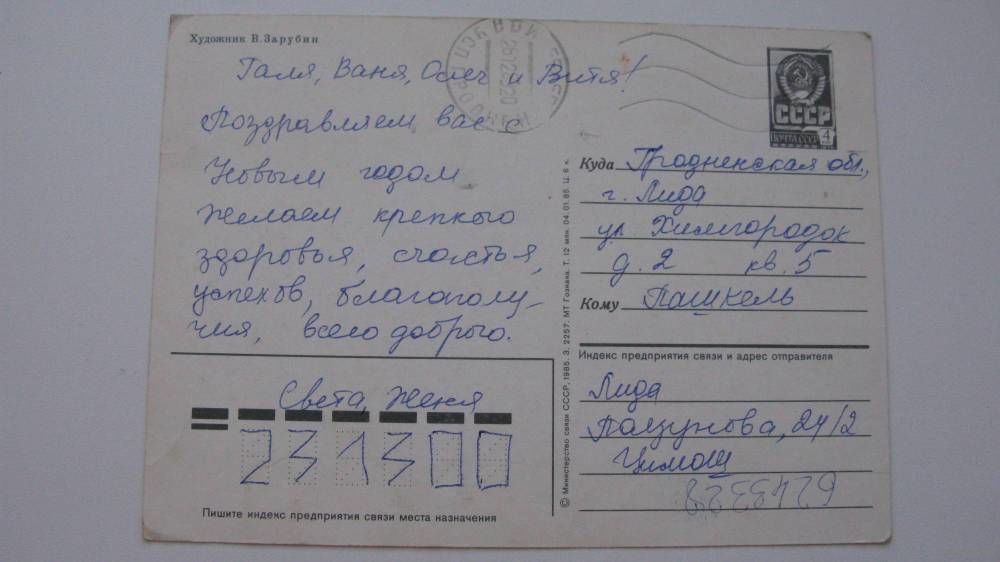 Художник В. Зарубин
Галя, Ваня, Олег и Витя!
Поздравляем вас с
Новым годом
Желаем крепкого
здоровья, счастья,
успехов, благаполу-
чия, всего доброго.
Света, Женя
231300
Пишите индекс предприятия связи места назначения
© Министерство связи СССР, 1985. З. 2257. МТ Гознака. Т. 12 млн. 04.01.85. Ц. 6 к.
СССР
ПОЧТА СССР
4
Куда Гродненская обл.,
г. Лида
ул Химгородок
д. 2 кв. 5
Кому Пашкель
Индекс предприятия связи и адрес отправителя
Лида
Ползунова, 24/2
Цимош